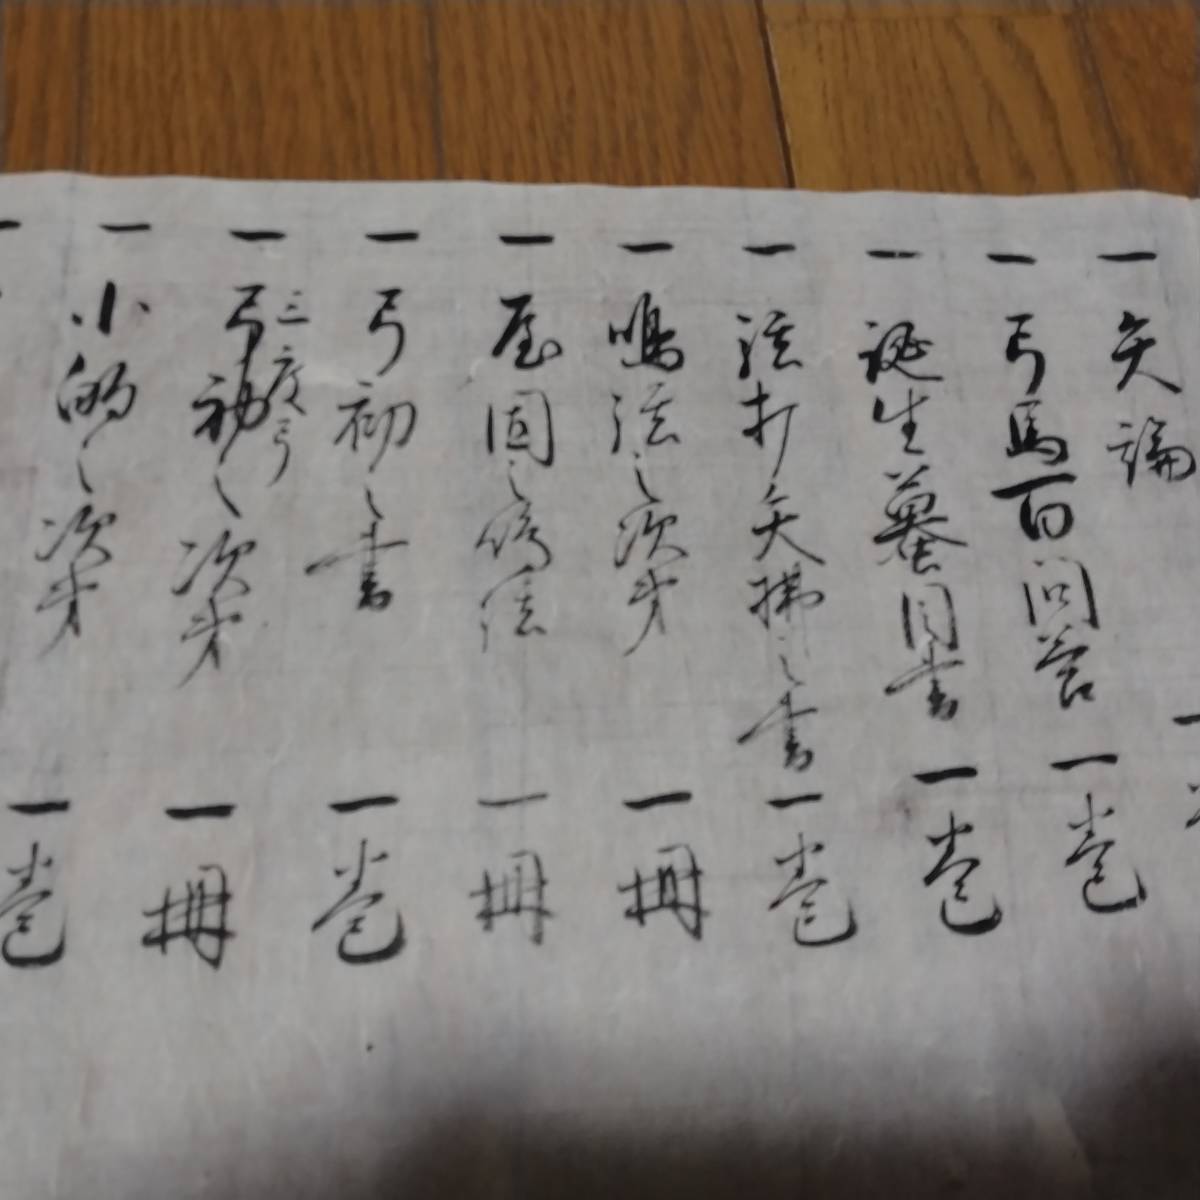 一 矢論
一 弓馬百問答 一巻
一 誕生蟇目書 一巻
一 弦打矢拂之書 一巻
一 鳴弦之次第 一冊
一 屋固之修法 一冊
一 弓初之書 一巻
三度弓
一 弓初之次第 一冊
一 小的之次第 一巻
一